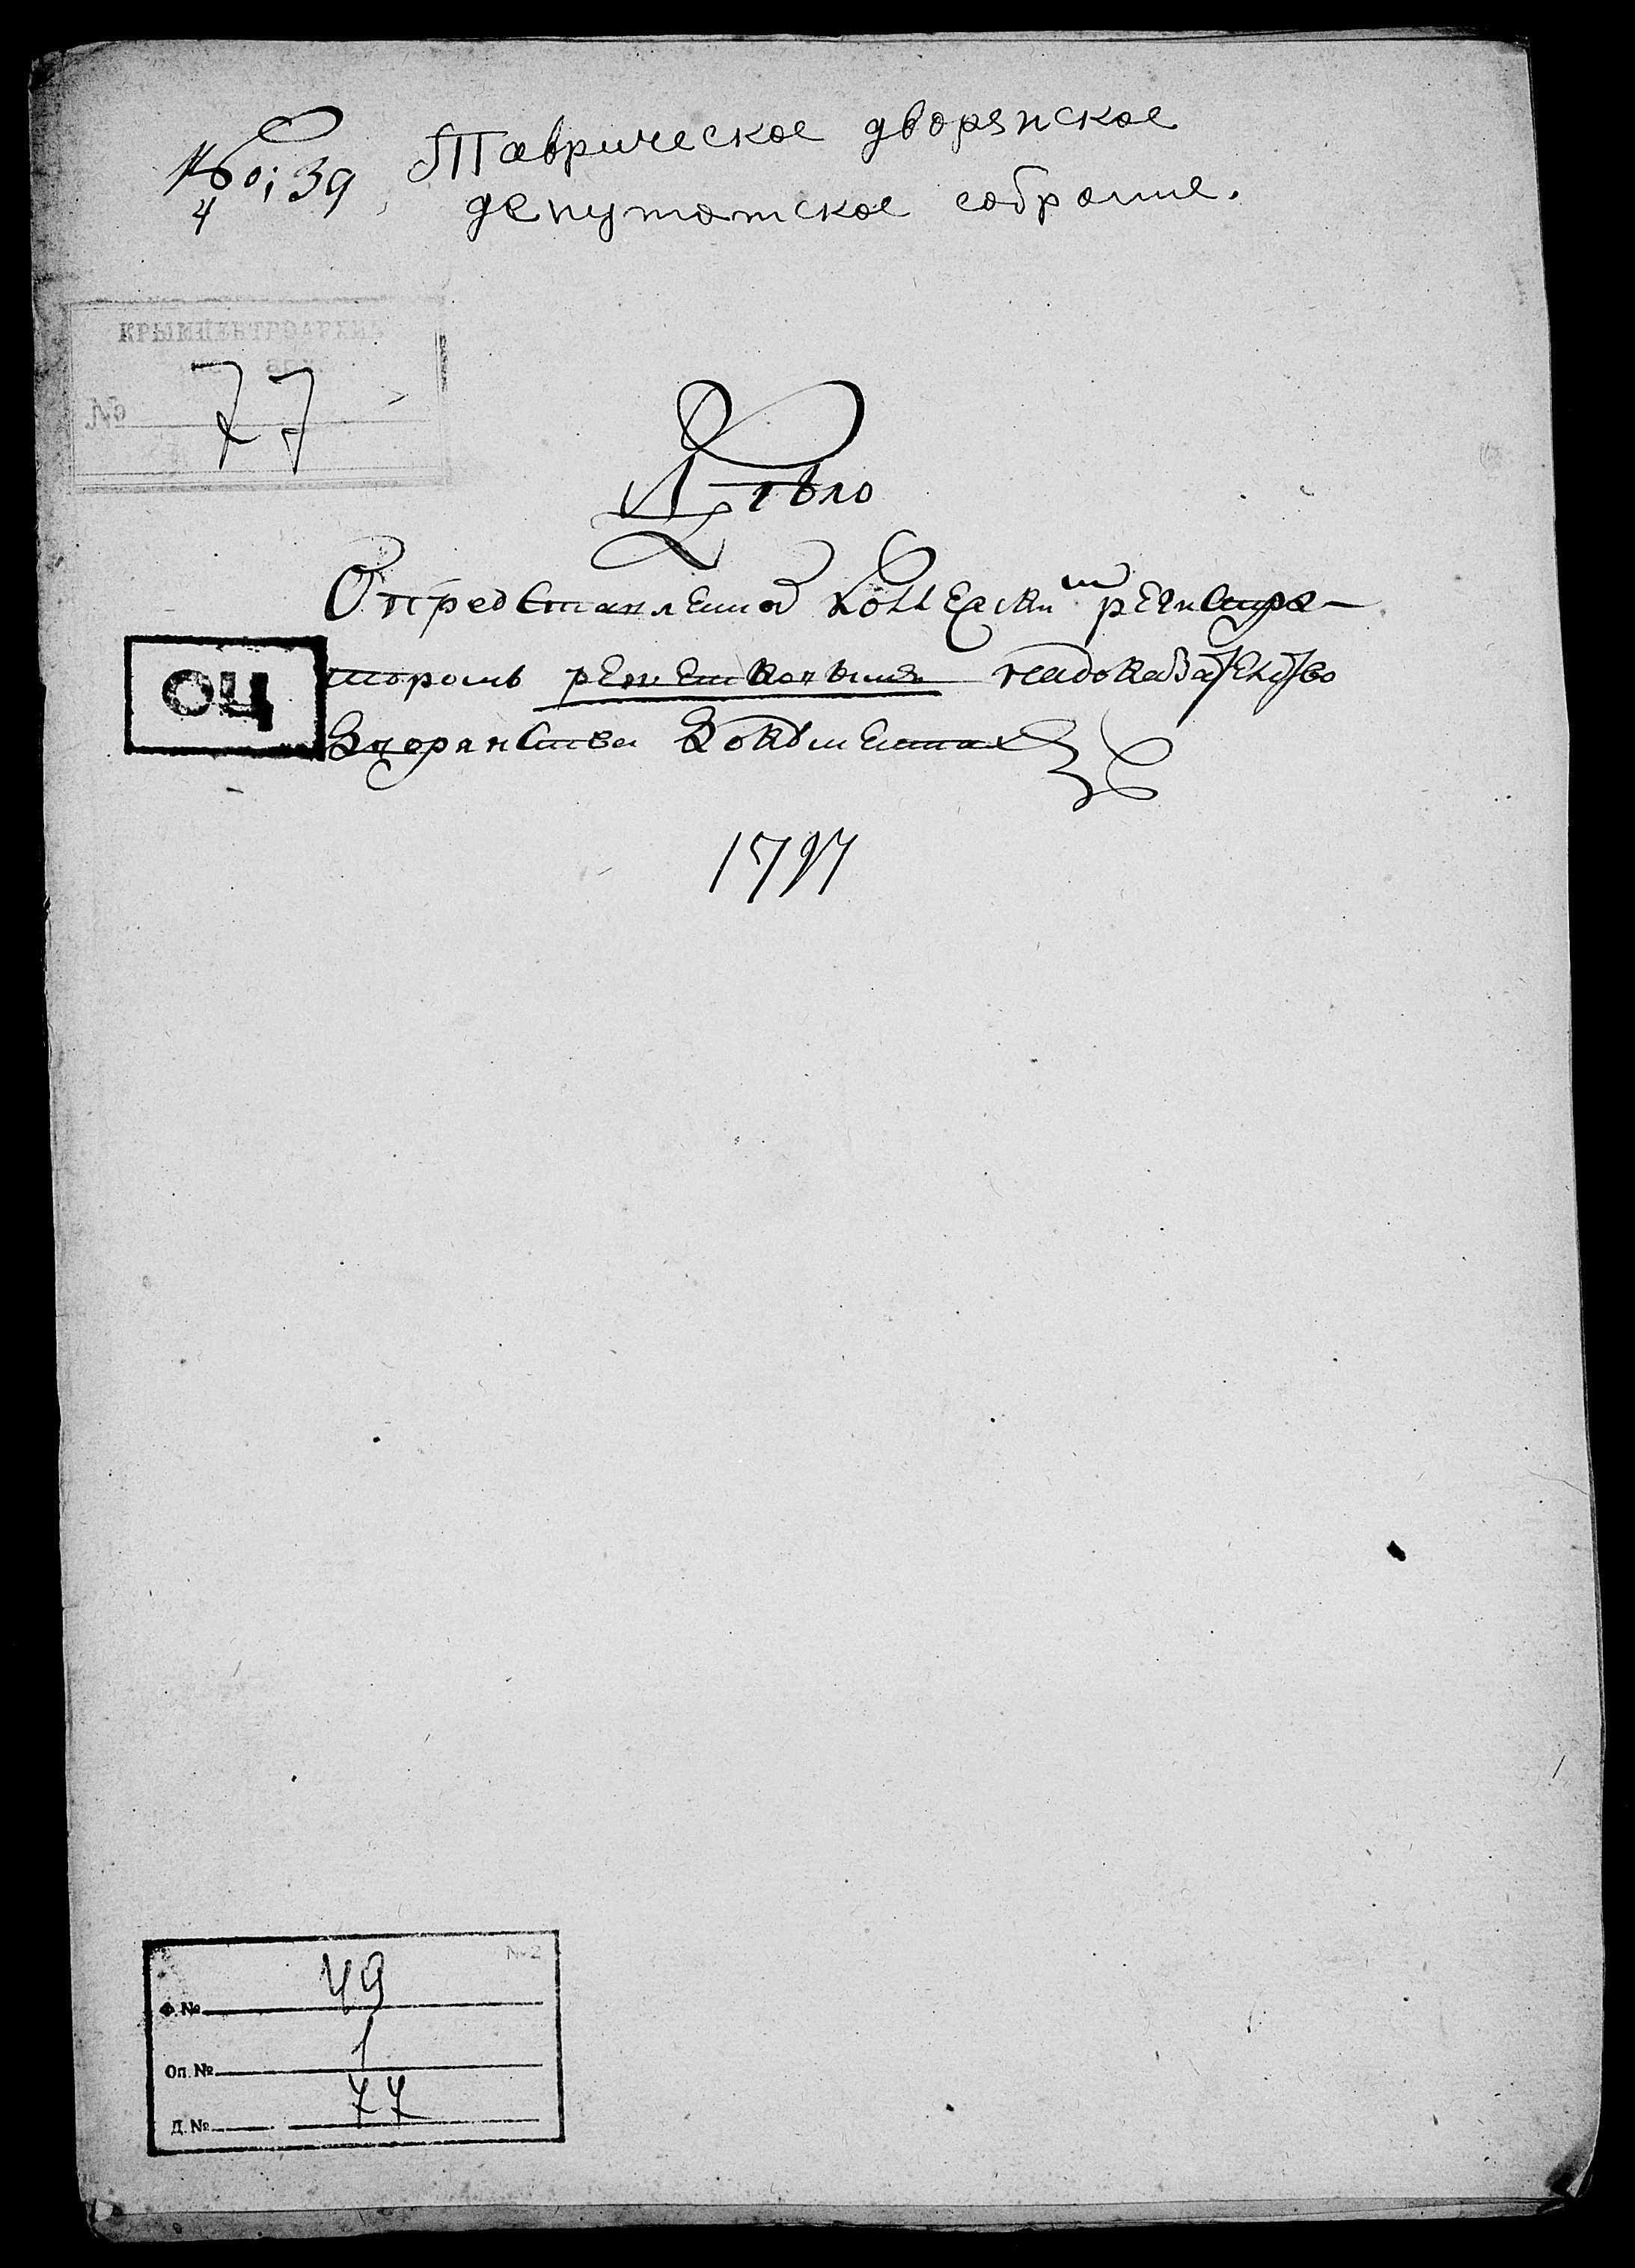 № 39,
4
Таврическое дворянское
депутатское собрание.
КРЫМЦЕНТРАРХИВ
№ 77
Дѣло
Опредставленно Коллескимъ регистра-
торомъ на доказательство
дворянства Документахъ
ОЦ
1797
№2
Ф. № 49
Оп. № 1
Д. № 77